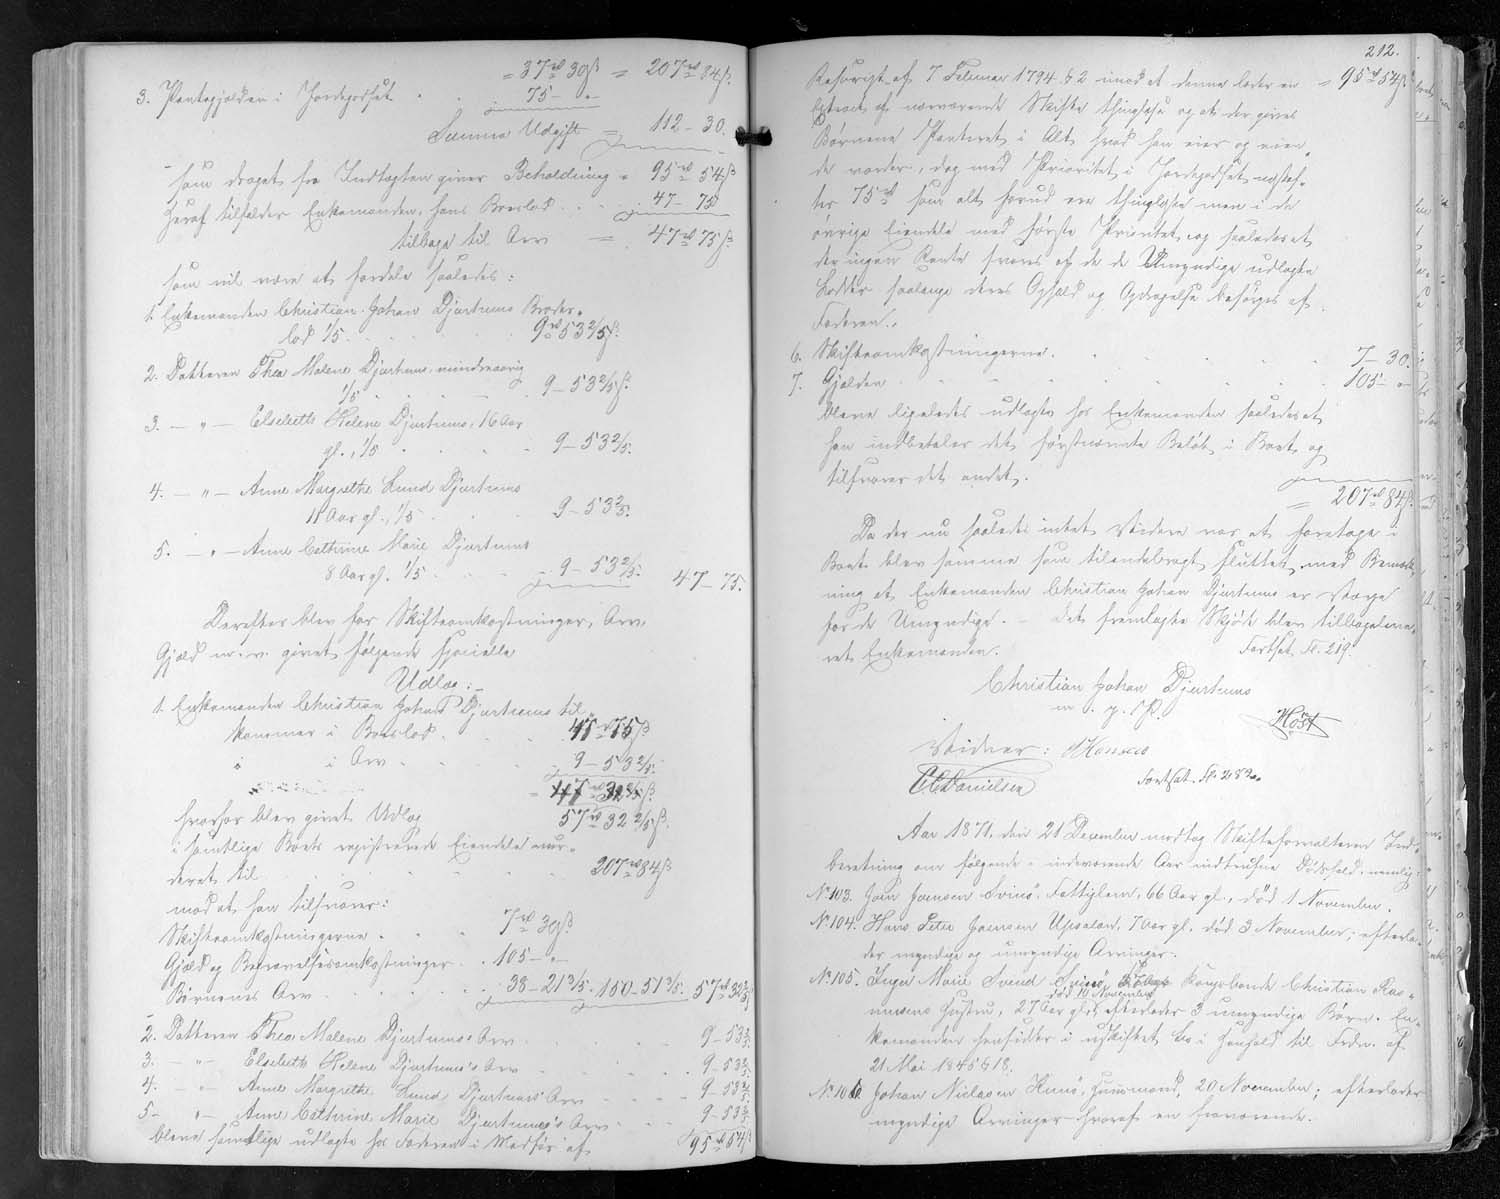 = 37 rd 30 ß = 207 rd 84 ß.
3. Pantegjælden i Jordegodset . . 75 - "
Summa Udgift = 112 - 30.
som draget fra Indtægten giver Beholdning = 95 rd 54 ß
heraf tilfalder Enkemanden, hans Boeslod . . . 47 - 75
tilbage til Arv = 47 rd 75 ß.
som vil være at fordele saaledes:
1. Enkemanden Christian Johan Djurtums Broder-
lod 1/5 . . . . . 9 rd 53 2/5 ß.
2. Datteren Thea Malene Djurtums, mindreaarig
1/5 . . . . 9 - 53 2/5 ß.
3. - " - Elsebeth Helene Djurtums, 16 Aar
gl., 1/5 . . . . 9 - 53 2/5.
4. - " - Anne Margrethe Lund Djurtums
11 Aar gl., 1/5 . . . 9 - 53 2/5.
5. - " - Anne Cathrine Marie Djurtums
8 Aar gl. 1/5 . . . 9 - 53 2/5. 47 - 75.
Derefter blev for Skifteomkostninger, Arv,
Gjæld m. v. givet følgende specielle
Udlæg:
1. Enkemanden Christian Johan Djurtums til-
kommer i Boeslod . . . 47 rd 75 ß
i Arv . . . 9 - 53 2/5.
hvorfor blev givet Udlæg 57 rd 32 2/5 ß.
i samtlige Boets registrerede Eiendele vur-
deret til . . . . . 207 rd 84 ß
mod at han tilsvarer:
Skifteomkostningerne . . . 7 rd 30 ß.
Gjæld og Begravelsesomkostninger . . 105 - "
Børnenes Arv . . . . 38 - 21 3/5. 150 - 51 3/5. 57 rd 32 2/5 ß
2. Datteren Thea Malene Djurtums's Arv . . . 9 - 53 2/5
3. - " - Elsebeth Helene Djurtums's Arv . . . 9 - 53 2/5.
4. - " - Anne Margrethe Lund Djurtums' Arv . . . 9 - 53 2/5
5. - " - Anne Cathrine Marie Djurtums's Arv . . . 9 - 53 2/5
bleve samtlige udlagte hos Faderen i Medfør af 95 rd 54 ß
212.
Reskript af 7 Februar 1794 § 2 imod at denne lader en = 95 rd 54 ß.
Extract af nærværende Skifte thinglæse og at der gives
Børnene Panteret i Alt hvad han eier og eien-
de vorder, dog med Prioritet i Jordegodset næstef-
ter 75 rd som alt forud ere thinglæste men i de
øvrige Eiendele med første Prioritet og saaledes at
der ingen Rente svares af de de Umyndige udlagte
Lodder saalænge deres Ophold og Opdragelse besørges af
Faderen.
6. Skifteomkostningerne . . . . . . 7 - 30.
7. Gjælden . . . . . . . 105 - "
bleve ligeledes udlagte hos Enkemanden saaledes at
han indbetaler det førstnævnte Beløb i Boet og
tilsvarer det andet.
= 207 rd 84 ß.
Da der nu saaledes intet videre var at foretage i
Boet blev samme som tilendebragt sluttet med Bemærk-
ning at Enkemanden Christian Johan Djurtums er Værge
for de Umyndige. - Det fremlagte Skjøde blev tilbageleve-
ret Enkemanden. Fortsat Fl. 219.
Christian Johan Djurtums
m. p. P.
Høst
Vidner: Hansen
C C Danielsen Fortsat Fl. 282.
Aar 1871, den 21 December modtog Skifteforvalteren Ind-
beretning om følgende i indeværende Aar indtrufne Dødsfald, nemlig:
No 103. Jørn Joensen Svinø, Fattiglem, 66 Aar gl., død 1 November.
No 104. Hans Peter Joensen Upsalon, 7 Aar gl. død 3 November; efterla-
der myndige og umyndige Arvinger.
No 105. Inger Marie Svend Svinø, Kongsbonde Christian Ras-
død 10 November
mussens Hustru, 27 Aar gl., efterlader 3 umyndige Børn. En-
kemanden hensidder i uskiftet Bo i Henhold til Frdn. af
21 Mai 1845 § 18.
No 106. Johan Nielsen Husø, Huusmand, 20 November; efterlader
myndige Arvinger hvoraf en fraværende.